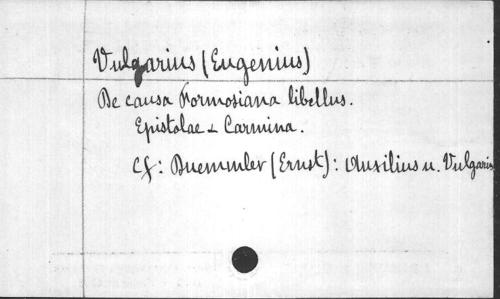 Vulgarius (Eugenius)
De causa Formosiana libellus.
Epistolae & Carmina.
Cf: Duemmler (Ernst): Auxilius u. Vulgarius